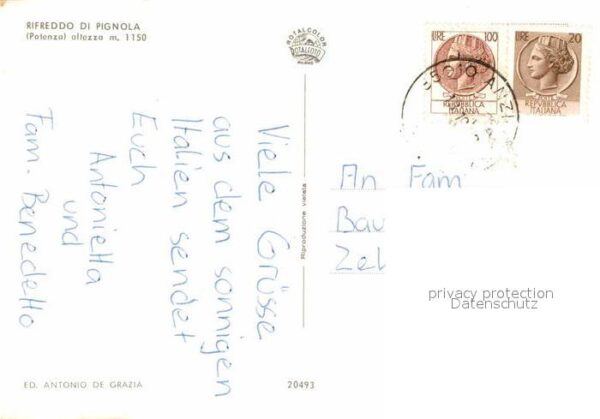 RIFREDDO DI PIGNOLA
(Potenza) altezza m. 1150
ROTALCOLOR
ROTALFOTO
MILANO
LIRE 100
REPVBBLICA
ITALIANA
LIRE 20
REPVBBLICA
ITALIANA
85010 ANZI
Viele Grüsse
aus dem sonnigen
Italien sendet
Euch
Antonietta
und
Fam. Benedetto
Riproduzione vietata
An Fam
Bau
Zel
privacy protection
Datenschutz
ED. ANTONIO DE GRAZIA
20493